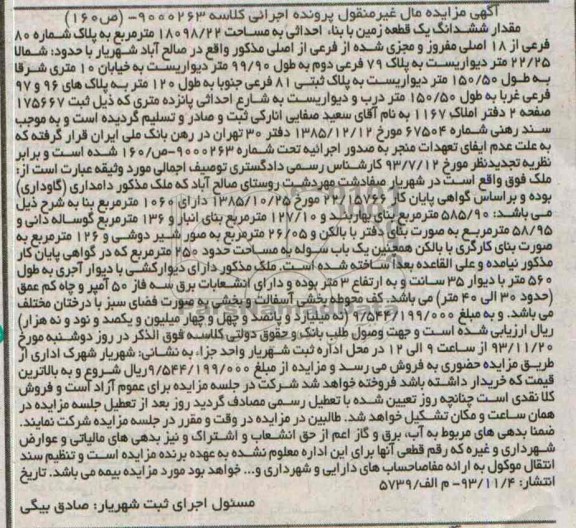 آگهی مزایده مال غیرمنقول پرونده اجرائی کلاسه ۹۰۰۰۲۶۳- (ص۱۶۰)
مقدار ششدانگ یک قطعه زمین با بناء احداثی به مساحت ۱۸۰۹۸/۲۲ مترمربع به پلاک شماره ۸۰
فرعی از ۱۸ اصلی مفروز و مجزی شده از فرعی از اصلی مذکور واقع در صالح آباد شهریار با حدود: شمالا
۲۲/۲۵ متر دیواریست به پلاک ۷۹ فرعی دوم به طول ۹۹/۹۰ متر دیواریست به خیابان ۱۰ متری شرقا
به طول ۱۵۰/۵۰ متر دیواریست به پلاک ثبتی ۸۱ فرعی جنوبا به طول ۱۲۰ متر به پلاک های ۹۶ و ۹۷
فرعی غربا به طول ۱۵۰/۵۰ متر درب و دیواریست به شارع احداثی پانزده متری که ذیل ثبت ۱۷۵۶۶۷
صفحه ۲ دفتر املاک ۱۱۶۷ به نام آقای سعید صفایی انارکی ثبت و صادر و تسلیم گردیده است و به موجب
سند رهنی شماره ۶۷۵۰۴ مورخ ۱۳۸۵/۱۲/۱۲ دفتر ۳۰ تهران در رهن بانک ملی ایران قرار گرفته که
به علت عدم ایفای تعهدات منجر به صدور اجرائیه تحت شماره ۹۰۰۰۲۶۳-ص/۱۶۰ شده است و برابر
نظریه تجدیدنظر مورخ ۹۳/۷/۱۲ کارشناس رسمی دادگستری توصیف اجمالی مورد وثیقه عبارت است از:
ملک فوق واقع است در شهریار صفادشت مهردشت روستای صالح آباد که ملک مذکور دامداری (گاوداری)
بوده و براساس گواهی پایان کار ۲۲/۱۵۷۶۶ مورخ ۱۳۸۵/۱۰/۲۵ دارای ۱۰۶۰ مترمربع بنا به شرح ذیل
می باشد: ۵۸۵/۹۰ مترمربع بنای بهاربند و ۱۲۷/۱۰ مترمربع بنای انبار و ۱۳۶ مترمربع گوساله دانی و
۵۸/۹۵ مترمربع به صورت بنای دفتر با بالکن و ۲۶/۰۵ مترمربع به صور شیر دوشی و ۱۲۶ مترمربع به
صورت بنای کارگری با بالکن همچنین یک باب سوله به مساحت حدود ۲۵۰ مترمربع که در گواهی پایان کار
مذکور نیامده و علی القاعده بعدا ساخته شده است. ملک مذکور دارای دیوارکشی با دیوار آجری به طول
۵۶۰ متر با دیوار ۳۵ سانت و به ارتفاع ۳ متر بوده و دارای انشعابات برق سه فاز ۵۰ آمپر و چاه کم عمق
(حدود ۳۰ الی ۴۰ متر) می باشد. کف محوطه بخشی آسفالت و بخشی به صورت فضای سبز با درختان مختلف
می باشد. و به مبلغ ۹/۵۴۴/۱۹۹/۰۰۰ (نه میلیارد و پانصد و چهل و چهار میلیون و یکصد و نود و نه هزار)
ریال ارزیابی شده است و جهت وصول طلب بانک و حقوق دولتی کلاسه فوق الذکر در روز دوشنبه مورخ
۹۳/۱۱/۲۰ از ساعت ۹ الی ۱۲ در محل اداره ثبت شهریار واحد جزاء به نشانی: شهریار شهرک اداری از
طریق مزایده حضوری به فروش می رسد و مزایده از مبلغ ۹/۵۴۴/۱۹۹/۰۰۰ ریال شروع و به بالاترین
قیمت که خریدار داشته باشد فروخته خواهد شد شرکت در جلسه مزایده برای عموم آزاد است و فروش
کلا نقدی است چنانچه روز تعیین شده با تعطیل رسمی مصادف گردید روز بعد از تعطیل جلسه مزایده در
همان ساعت و مکان تشکیل خواهد شد. طالبین در مزایده در وقت و مقرر در جلسه مزایده شرکت نمایند.
ضمنا بدهی های مربوط به آب، برق و گاز اعم از حق انشعاب و اشتراک و نیز بدهی های مالیاتی و عوارض
شهرداری و غیره که رقم قطعی آنها برای این اداره معلوم نشده به عهده برنده مزایده است و تنظیم سند
انتقال موکول به ارائه مفاصاحساب های دارایی و شهرداری و... خواهد بود مورد مزایده بیمه می باشد. تاریخ
انتشار: ۹۳/۱۱/۴- م الف/۵۷۳۹
مسئول اجرای ثبت شهریار: صادق بیگی